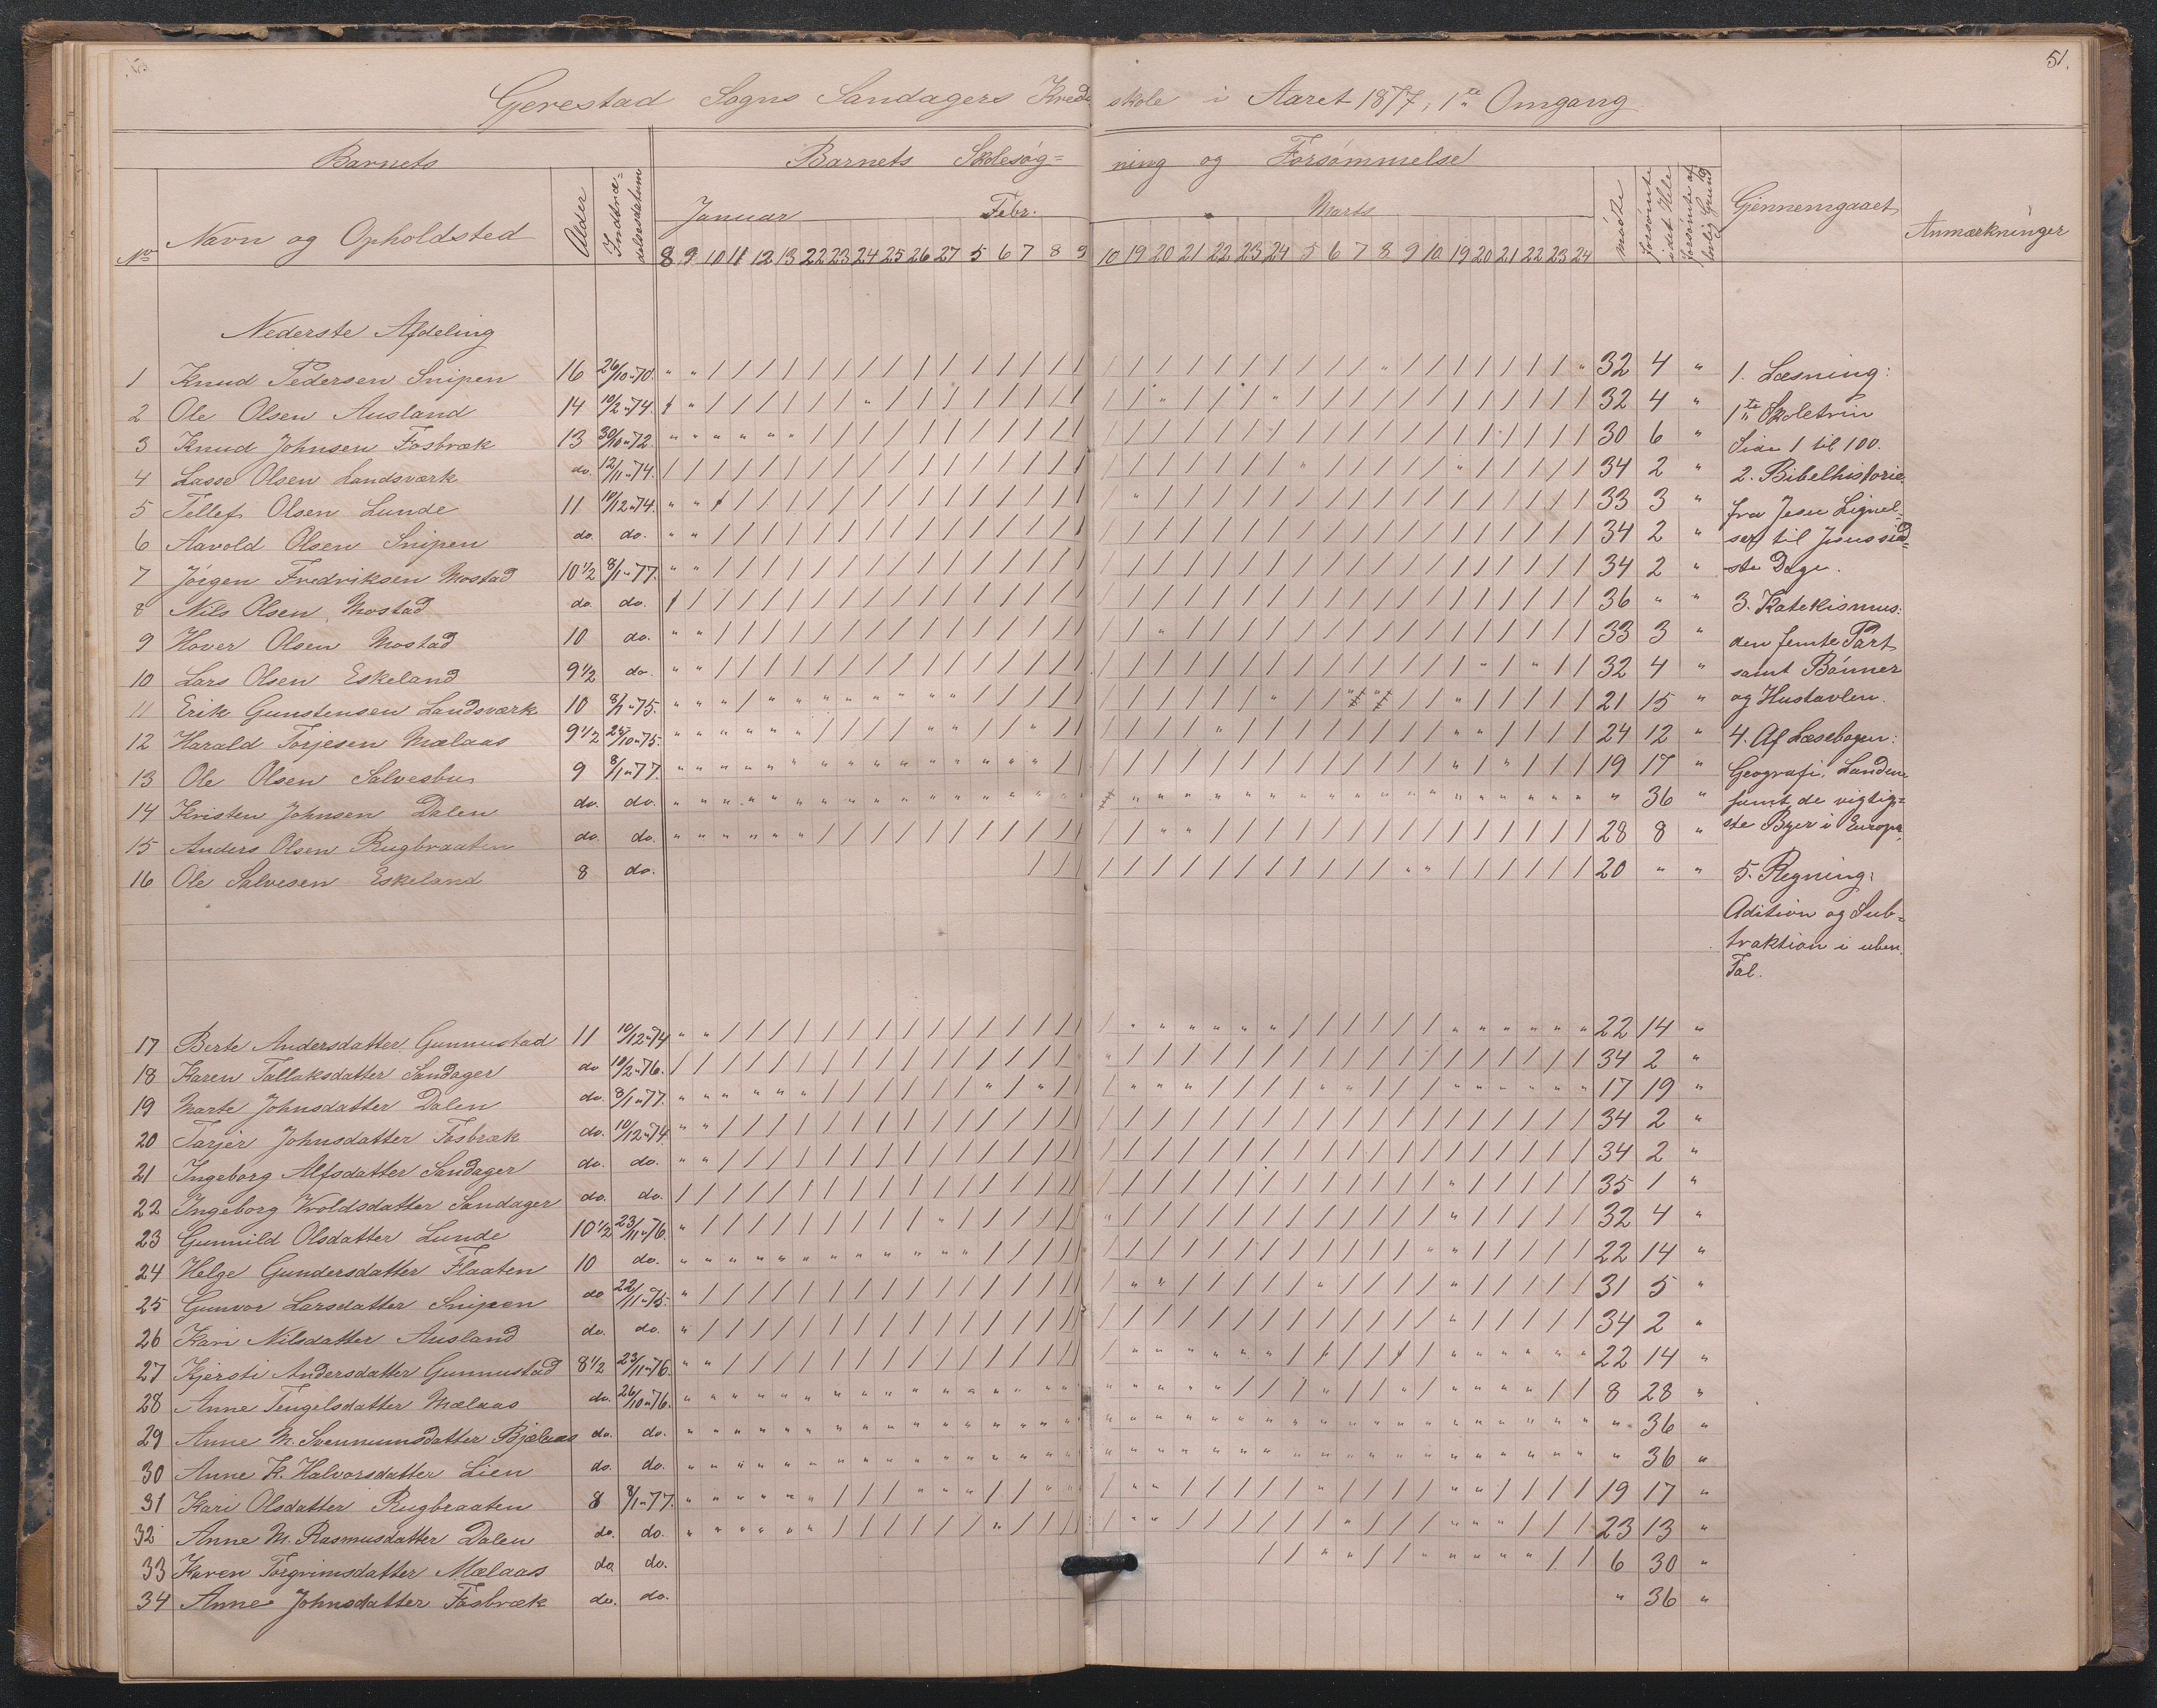 51.
Gerestad Sogns Sandagers Kreds skole i Aaret 1877, 1ste Omgang
Barnets
Barnets Skolesøg= ning og Forsømmelse
No Navn og Opholdsted Alder Indtræ= delsesdatum Januar Febr. Marts mødte forsømte idet Hele forsømte af lovlig Grund Gjennemgaaet Anmærkninger
8 9 10 11 12 13 22 23 24 25 26 27 5 6 7 8 9 10 19 20 21 22 23 24 5 6 7 8 9 10 19 20 21 22 23 24
Nederste Afdeling
1 Knud Pedersen Snipen 16 26/10 70. 32 4 "
2 Ole Olsen Ausland 14 10/2 74. 32 4 "
3 Knud Johnsen Fosbræk 13 30/10 72. 30 6 "
4 Lasse Olsen Landsværk do. 12/11 74. 34 2 "
5 Tellef Olsen Lunde 11 10/12 74. 33 3 "
6 Aavold Olsen Snipen do. do. 34 2 "
7 Jörgen Fredriksen Mostad 10 1/2 8/1 77. 34 2 "
8 Nils Olsen Mostad do. do. 36 " "
9 Hover Olsen Mostad 10 do. 33 3 "
10 Lars Olsen Eskeland 9 1/2 do. 32 4 "
11 Erik Gunstensen Landsværk 10 8/1 75. 21 15 "
12 Harald Torjesen Mælaas 9 1/2 /10 75. 24 12 "
13 Ole Olsen Salvesbu 9 8/1 77. 19 17 "
14 Kristen Johnsen Dalen do. do. " 36 "
15 Anders Olsen Rugbraaten do. do. 28 8 "
16 Ole Salvesen Eskeland 8 do. 20 " "
1. Læsning:
1ste Skoletrin
Side 1 til 100.
2. Bibelhistorie
fra Jesu Lignel=
ser til Jesus sid=
ste Dage.
3. Katekismus:
den femte Part
samt Bönner
og Hustavlen.
4. Af Læsebogen:
Geografi: Landene
samt de vigtig=
ste Byer i Europa,
5. Regning:
Adition og Sub=
traktion i uben.
Tal.
17 Berte Andersdatter Gunnustad 11 10/12 74 22 14 "
18 Karen Tallaksdatter Sandager do 10/2 76. 34 2 "
19 Marte Johnsdatter Dalen do. 8/1 77. 17 19 "
20 Tarjer Johnsdatter Fosbræk do. 10/12 74 34 2 "
21 Ingeborg Alfsdatter Sandager do. do. 34 2 "
22 Ingeborg Wroldsdatter Sandager do. do. 35 1 "
23 Gunnild Olsdatter Lunde 10 1/2 23/11 76. 32 4 "
24 Helge Gundersdatter Flaaten 10 do. 22 14 "
25 Gunvor Larsdatter Snipen do 22/11 75. 31 5 "
26 Kari Nilsdatter Ausland do. do. 34 2 "
27 Kjersti Andersdatter Gunnustad 8 1/2 23/11 76. 22 14 "
28 Anne Tengelsdatter Mælaas do. 26/10 76. 8 28 "
29 Anne M. Svennumsdatter Bjælaas do. do. " 36 "
30 Anne K. Halvorsdatter Lien do. do. " 36 "
31 Kari Olsdatter Rugbraaten 8 8/1 77. 19 17 "
32 Anne M. Rasmusdatter Dalen do. do. 23 13 "
33 Karen Torgrimsdatter Mælaas do. do. 6 30 "
34 Anne Johnsdatter Fosbræk do. do. " 36 "